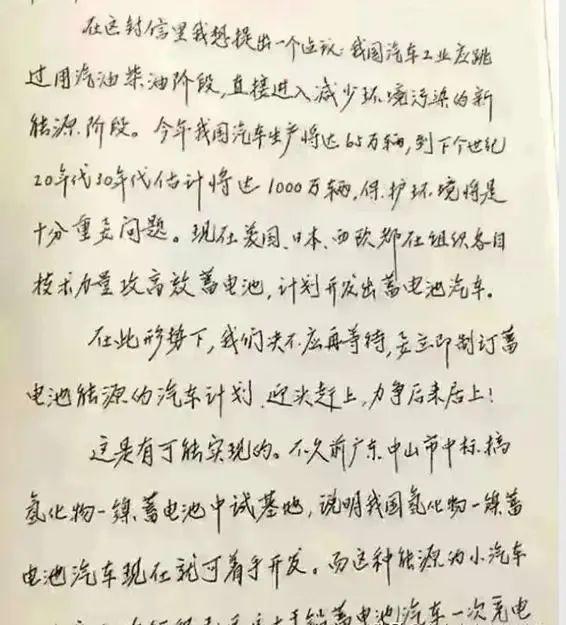 在这封信里我想提出一个建议：我国汽车工业应跳
过用汽油柴油阶段，直接进入减少环境污染的新
能源阶段。今年我国汽车生产将达65万辆，到下个世纪
20年代30年代估计将达1000万辆，保护环境将是
十分重要问题。现在美国、日本、西欧都在组织各自
技术力量攻高效蓄电池，计划开发出蓄电池汽车。
在此形势下，我们决不应再等待，要立即制订蓄
电池能源的汽车计划，迎头赶上，力争后来居上！
这是有可能实现的。不久前广东中山市中标搞
氢化物—镍蓄电池中试基地，说明我国氢化物—镍蓄
电池汽车现在就可着手开发。而这种能源为小汽车
蓄电池汽车一次充电